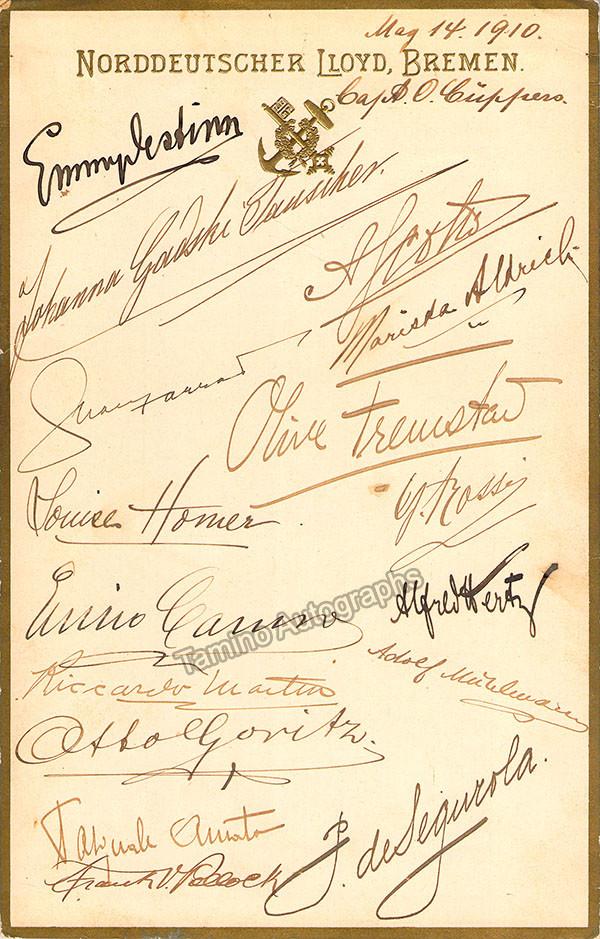 May 14. 1910.
NORDDEUTSCHER LLOYD, BREMEN.
Capt. O. Cüppers.
Emmy Destinn
Johanna Gadski Tauscher.
Mariska Aldrich
Olive Fremstad
Louise Homer
G. Rossi
Enrico Caruso
Alfred Hertz
Tamino Autographs
Adolf Mühlmann
Riccardo Martin
Otto Goritz.
Pasquale Amato
de Segurola.
Frank V. Pollock